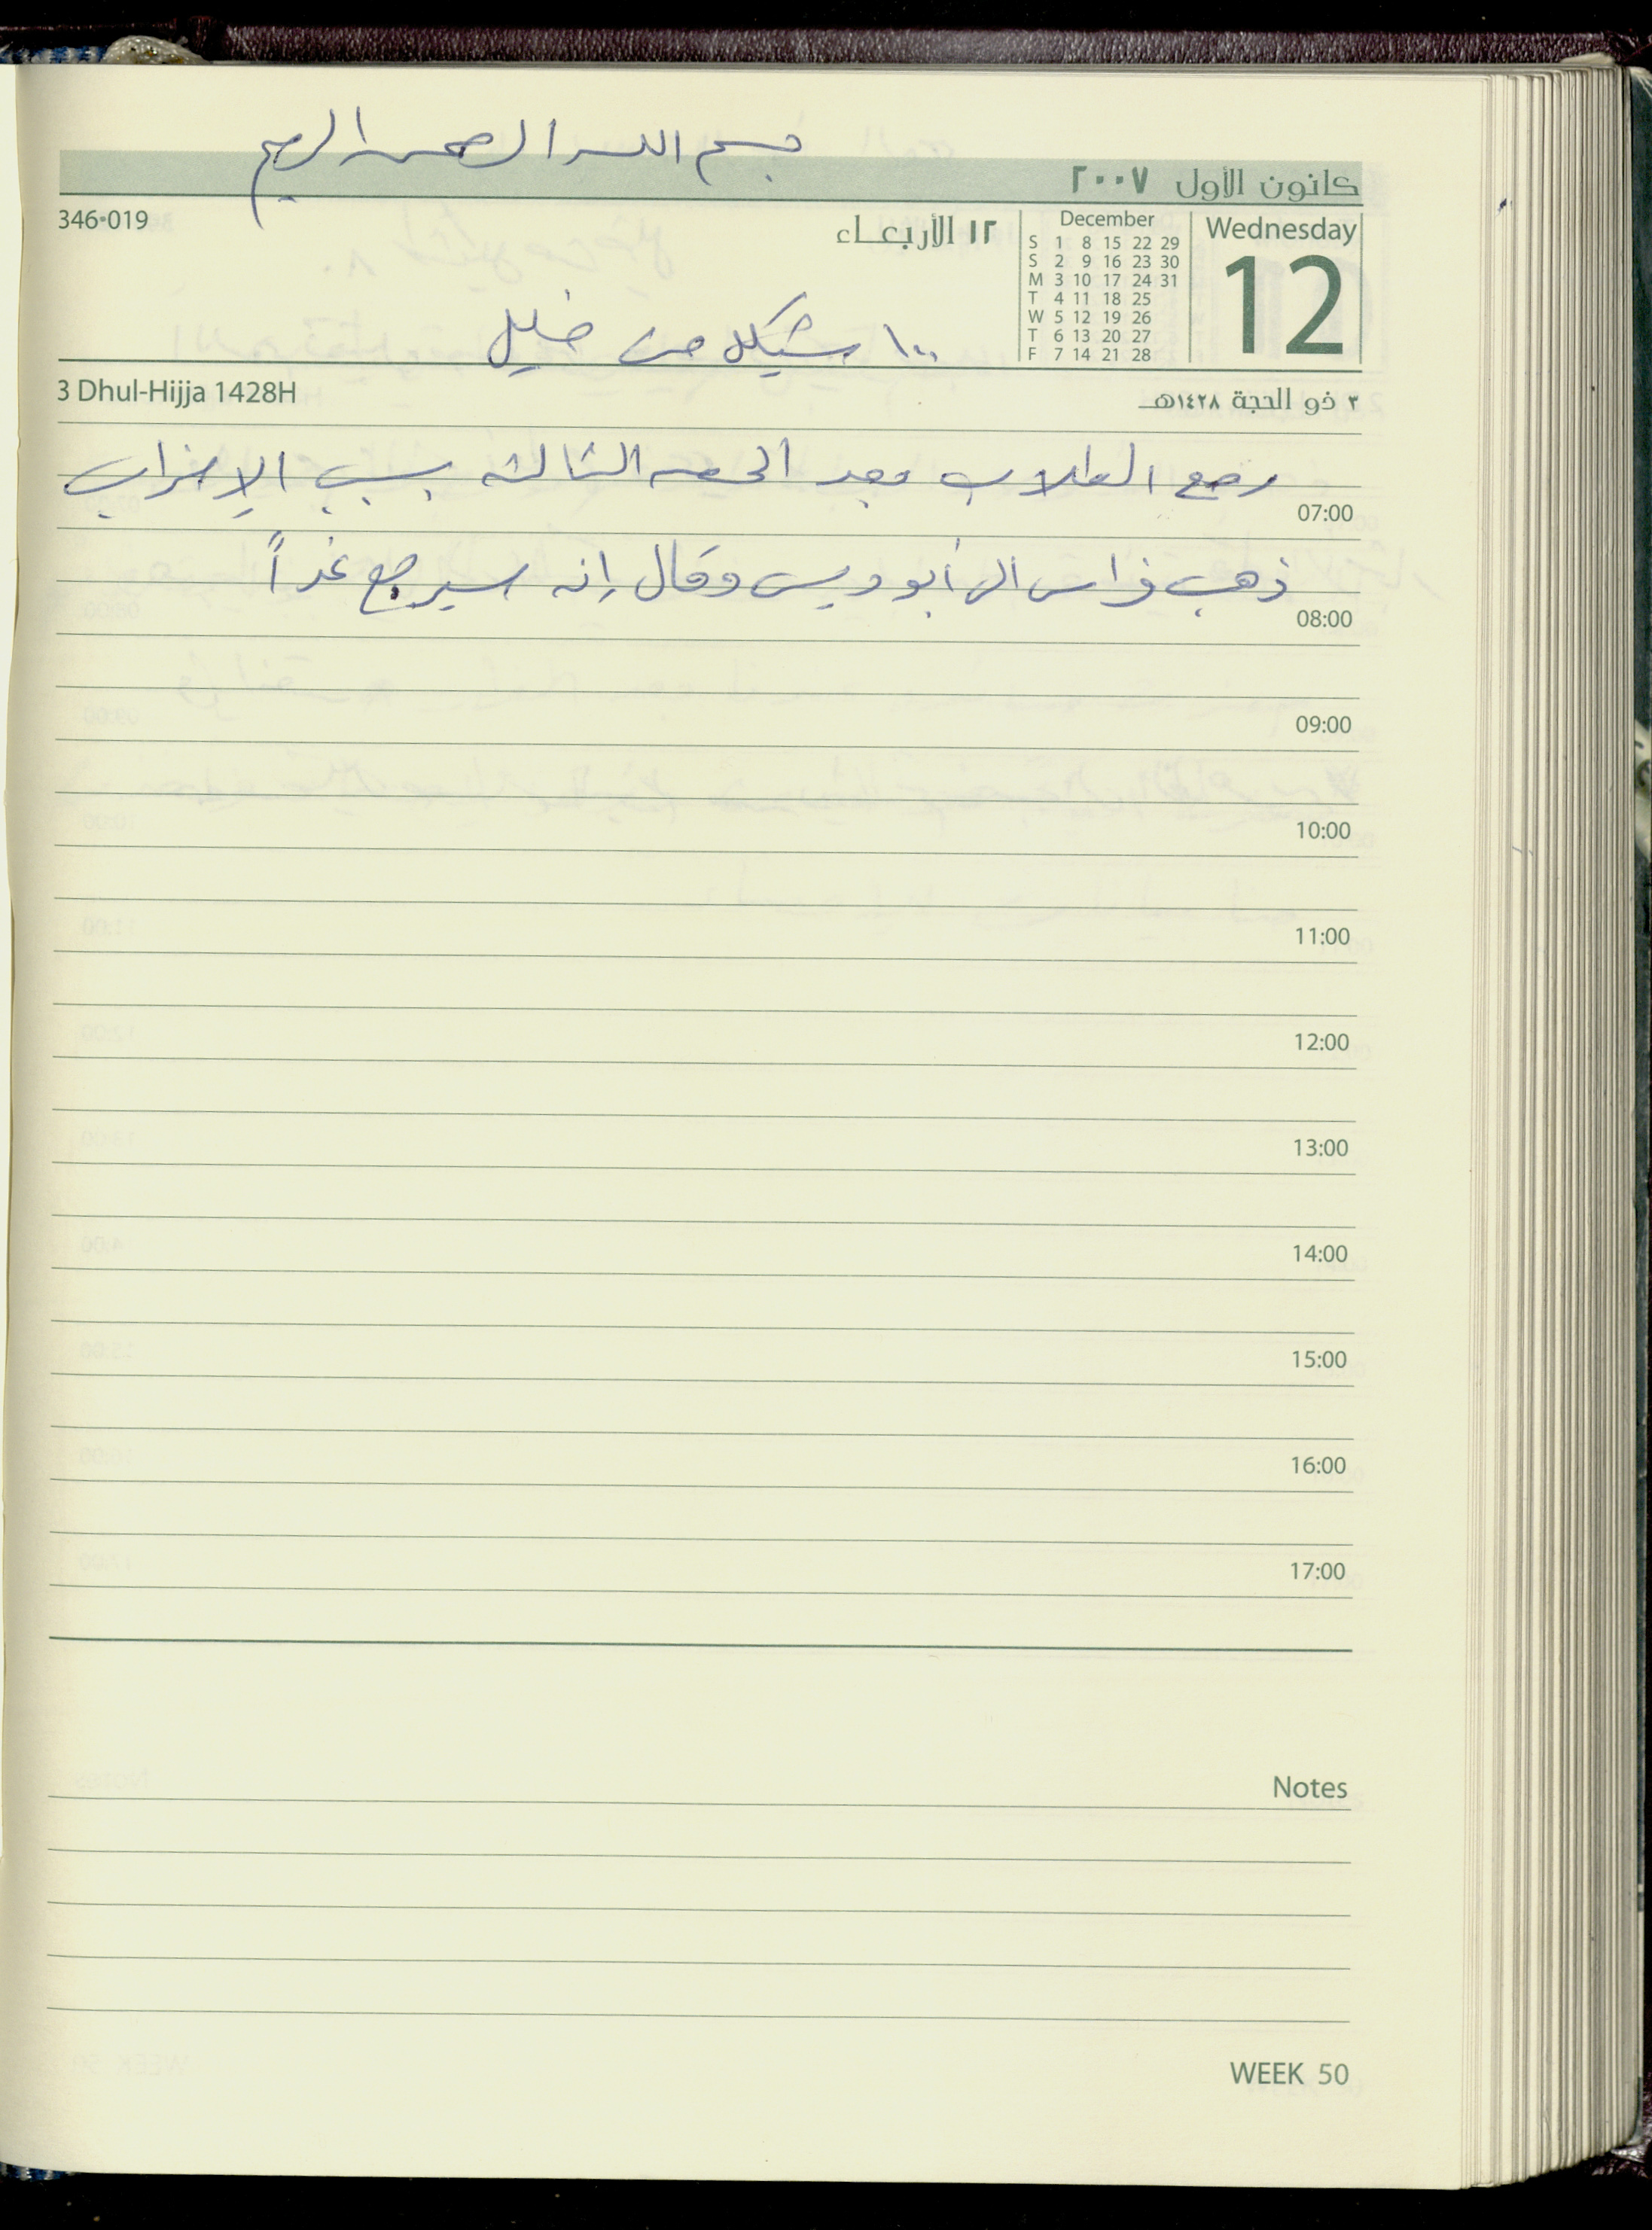 بسم الله الرحمن الرحيم
كانون الأول ٢٠٠٧
346-019
١٢ الأربعاء
December
S 1 8 15 22 29
S 2 9 16 23 30
M 3 10 17 24 31
T 4 11 18 25
W 5 12 19 26
T 6 13 20 27
F 7 14 21 28
Wednesday
12
١٠٠ شيكل من خليل
3 Dhul-Hijja 1428H
٣ ذو الحجة ١٤٢٨هـ
رجع الطلاب بعد الحصه الثالثه بسبب الإضراب
07:00
ذهب فراس الى أبو ديس وقال إنه سيرجع غداً
08:00
09:00
10:00
11:00
12:00
13:00
14:00
15:00
16:00
17:00
Notes
WEEK 50